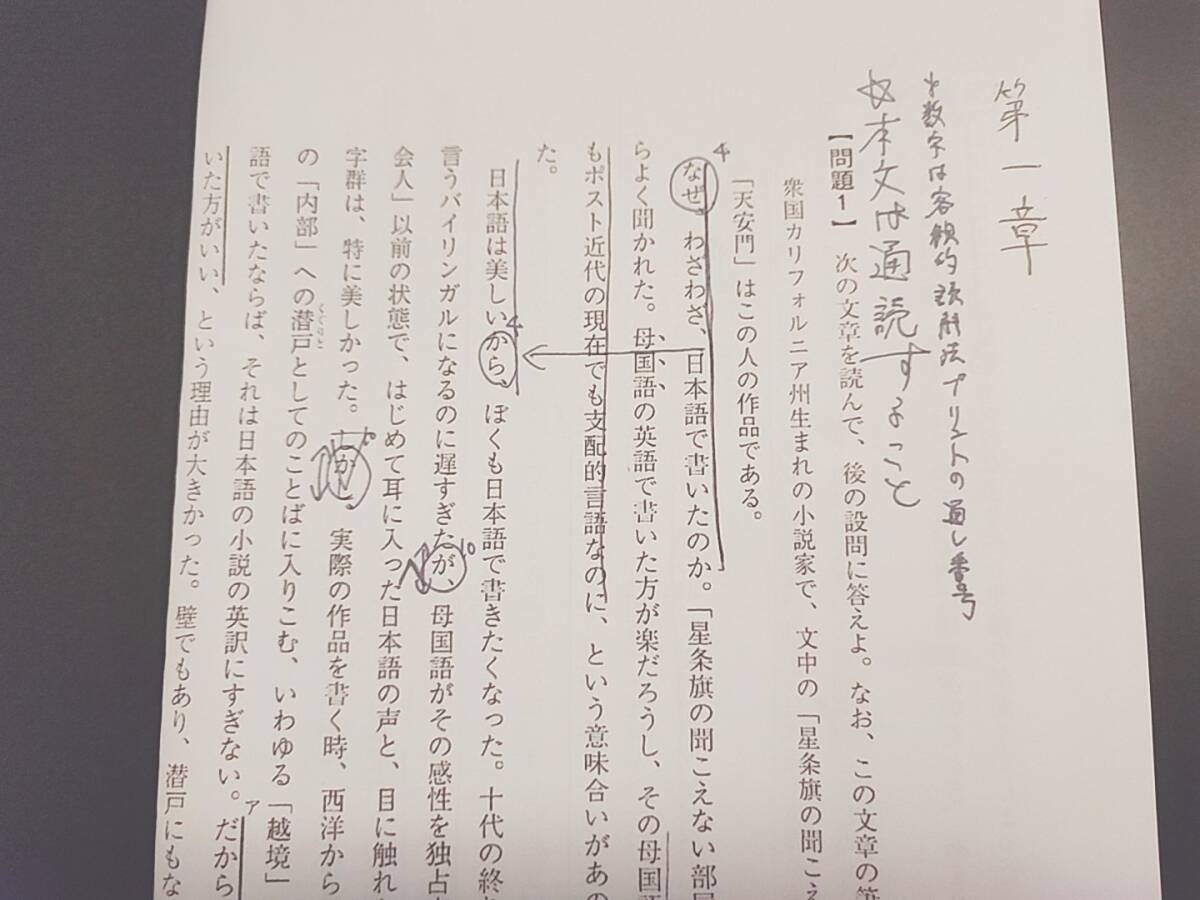 第一章
*数字は客観的読解法プリントの通し番号
☆本文は通読すること
【問題1】 次の文章を読んで、後の設問に答えよ。なお、この文章の筆
衆国カリフォルニア州生まれの小説家で、文中の「星条旗の聞こえ
「天安門」はこの人の作品である。
4
なぜ、わざわざ、日本語で書いたのか。「星条旗の聞こえない部屋
らよく聞かれた。母国語の英語で書いた方が楽だろうし、その母国語
もポスト近代の現在でも支配的言語なのに、という意味合いがあの
た。
4
日本語は美しいから、ぼくも日本語で書きたくなった。十代の終わ
言うバイリンガルになるのに遅すぎたが、母国語がその感性を独占
10
会人」以前の状態で、はじめて耳に入った日本語の声と、目に触れ
字群は、特に美しかった。しかし、実際の作品を書く時、西洋から
の「内部」への潜戸としてのことばに入りこむ、いわゆる「越境」
くぐりど
語で書いたならば、それは日本語の小説の英訳にすぎない。だから
ア
いた方がいい、という理由が大きかった。壁でもあり、潜戸にもな